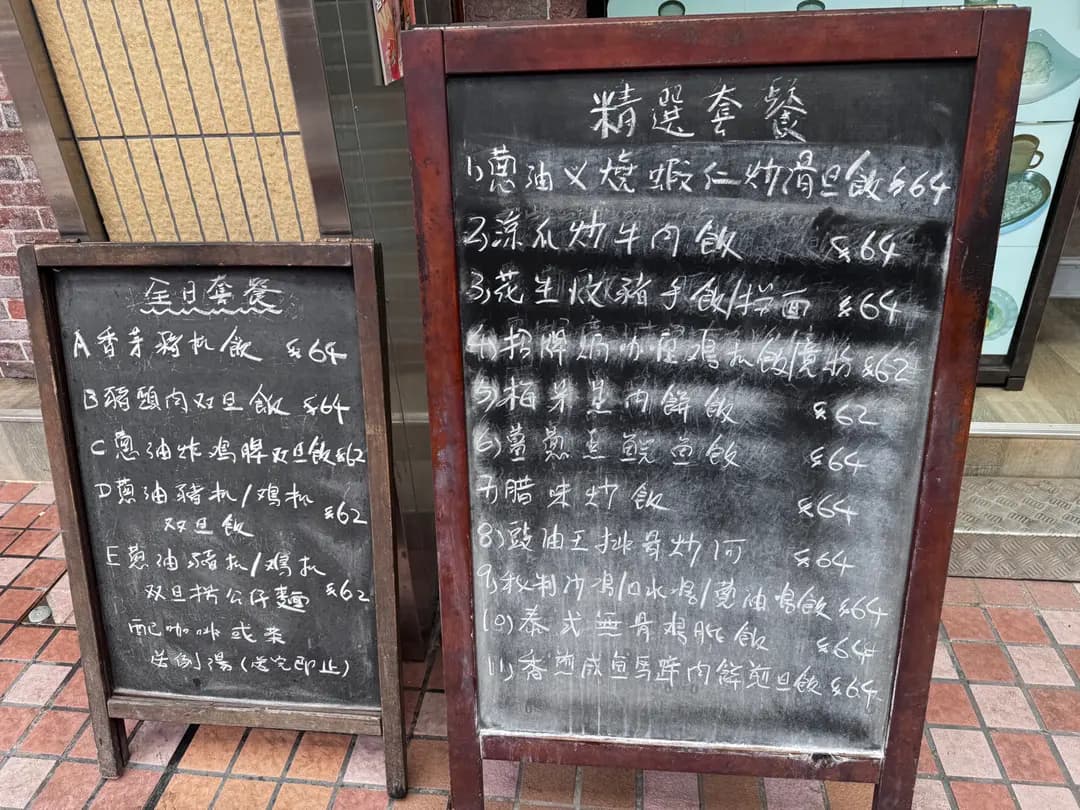 全日套餐
A 香茅豬扒飯 $64
B 豬頭肉双旦飯 $64
C 蔥油炸鸡脾双旦飯 $62
D 蔥油豬扒/鸡扒
双旦飯 $62
E 蔥油豬扒/鸡扒
双旦拌公仔麵 $62
配咖啡或茶
送例湯(送完即止)
精選套餐
1)蔥油叉燒蝦仁炒滑旦飯 $64
2)凉瓜炒牛肉飯 $64
3)花生炆豬手飯/拌面 $64
4)招牌焗咖喱鸡扒飯/意粉 $62
5)梅菜蒸肉餅飯 $62
6)薑蔥蒸鯇鱼飯 $64
7)腊味炒飯 $64
8)豉油王排骨炒河 $64
9)秘制沙姜/口水鸡/蔥油鸡飯 $64
10)泰式無骨鸡脾飯 $64
11)香煎咸鱼馬蹄肉餅煎旦飯 $64